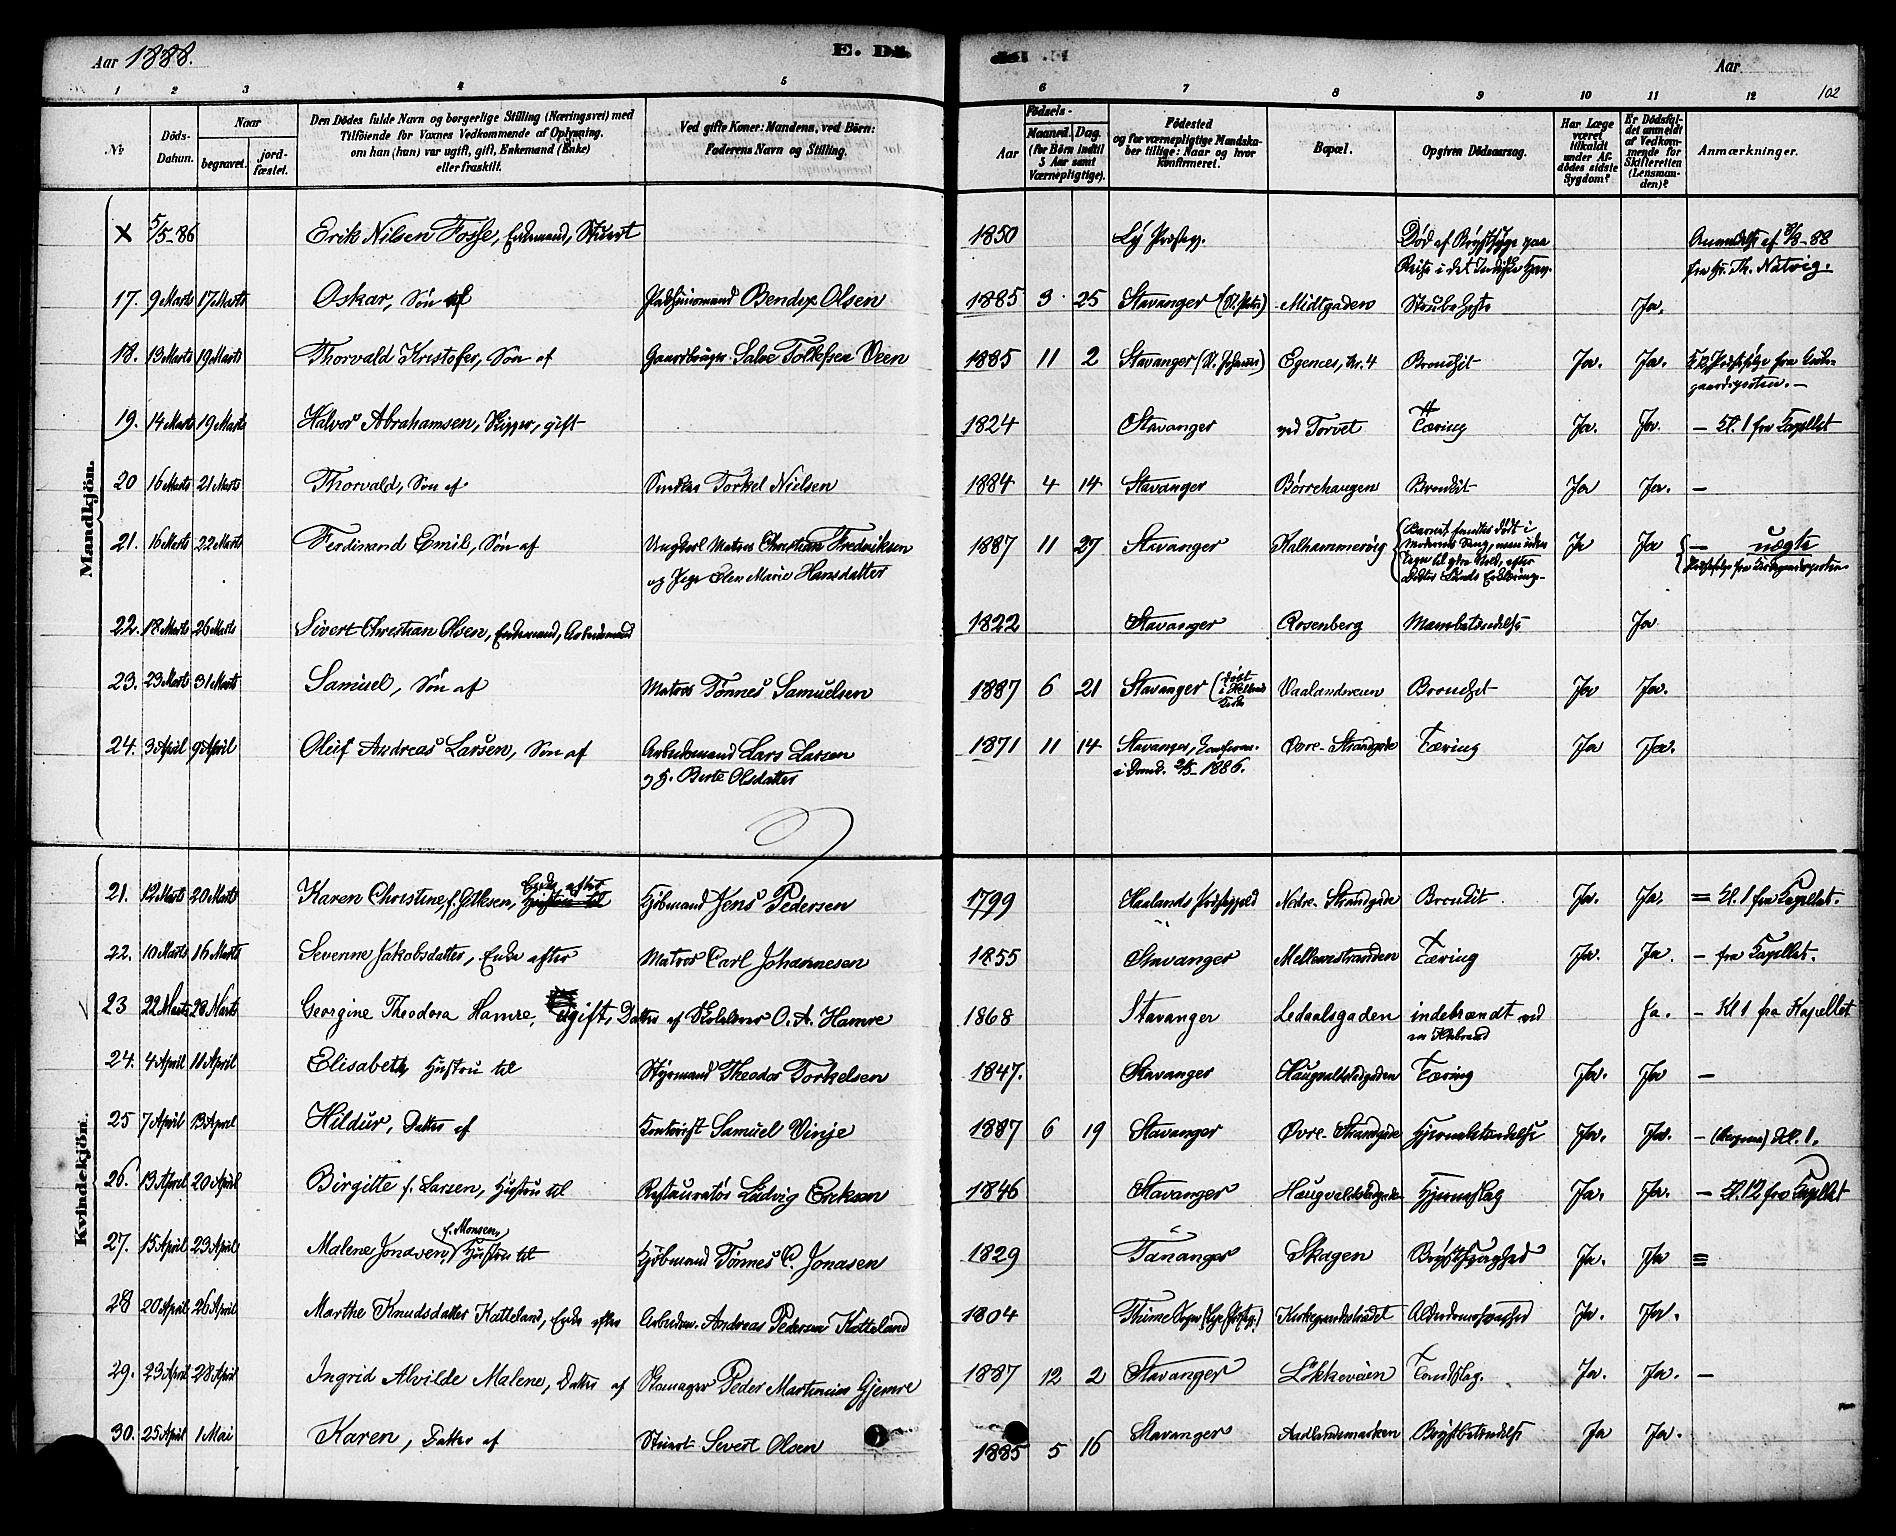 Aar 1888. E. Dö
Aar 102
1 2 3 4 5 6 7 8 9 10 11 12
No Döds-Datum. Naar begravet. jord-fæstet. Den Dödes fulde Navn og borgerlige Stilling (Næringsvei) med Tilföiende for Voxnes Vedkommende af Oplysning, om han (hun) var ugift, gift, Enkemand (Enke) eller fraskilt. Ved gifte Koner: Mandens, ved Börn: Faderens Navn og Stilling. Födsels- Aar Maaned. Dag. (for Börn indtil 5 Aar samt Værnepligtige). Födested og for værnepligtige Mandskaber tillige: Naar og hvor konfirmeret. Bopæl. Opgiven Dödsaarsag. Har Læge været tilkaldt under Afdödes sidste Sygdom? Er Dödsfaldet anmeldt af Vedkommende for Skifteretten (Lensmanden)? Anmærkninger.
Mandkjön.
X 5/5-86 Erik Nilsen Fosse, Enkemand, Stuert 1850 Lÿ Præstegj. Död af Brystsyge paa Reise i det Indiske Hav. Anmeldt af 8/3-88 fra Hr. Th. Natvig.
17. 9 Marts 17 Marts Oskar, Sön af Bendix Olsen 1885 3 25 Stavanger (St. Petri) Midtgaden Strubehoste Ja.
18. 13 Marts 19 Marts Thorvald Kristofer, Sön af Gaardbruger Salve Tollefsen Veen 1885 11 2 Stavanger (St. Johannis) Egenes, Nr. 4 Bronchit Ja. Ja.
19. 14 Marts 19 Marts Halvor Abrahamsen, Skipper, gift 1824 Stavanger ved Torvet Tæring Ja. Ja. — Kl. 1 fra Kapellet
20 16 Marts 21 Marts Thorvald, Sön af Torkel Nielsen 1884 4 14 Stavanger Börrehaugen Bronchit Ja Ja. —
21. 16 Marts 22 Marts Ferdinand Emil, Sön af Ungkarl Matros Christian Fredriksen og Pige Elen Marie Hansdatter 1887 11 27 Stavanger Kalhammervig Barnet fandtes dödt i Moderens Seng, men uden Tegn til ydre Vold, efter Doktor Lunds Erklæring. Ja Ja — uægte
22. 18 Marts 26 Marts Sivert Christian Olsen, Enkemand, Arbeidsmand 1822 Stavanger Rosenberg Ja
23. 23 Marts 31 Marts Samuel, Sön af Matros Tönnes Samuelsen 1887 6 21 Stavanger (döbt i Hetland Kirke) Vaalandsveien Bronchit Ja Ja.
24. 3 April 9 April Oluf Andreas Larsen, Sön af Arbeidsmand Lars Larsen og H. Berte Olsdatter 1871 11 14 Stavanger, Konfirm. i Domk. 2/5-1886. Övre-Strandgade Tæring Ja Ja.
Kvindekjön.
21. 12 Marts 20 Marts Karen Christine, f. Gilksen, Enke efter Kjöbmand Jens Pedersen 1799 Haalands Præstegjeld Nedre-Strandgade Bronchit Ja. Ja. = Kl. 1 fra Kapellet.
22. 10 Marts 16 Marts Severine Jakobsdatter, Enke efter Matros Carl Johannesen 1855 Stavanger Mellemstranden Tæring Ja. Ja. — fra Kapellet.
23 22 Marts 28 Marts Georgine Theodora Hamre, ugift, Datter af Skolelærer O. A. Hamre 1868 Stavanger Ledaalsgaden indebrændt ved en Ildebrand Ja. — Kl 1 fra Kapellet
24. 4 April 11 April Elisabeth, Hustru til Styrmand Theodor Torkelsen 1847. Stavanger Haugvaldstadgaden Tæring Ja. Ja —
25 7 April 13 April Hildur, Datter af Kontorist Samuel Vinje 1887 6 19 Stavanger Övre-Strandgade Hjernebetændelse Ja. Ja. — Kl. 1.
26. 13 April 20 April Birgitte f. Larsen, Hustru til Restauratör Ludvig Eriksen 1846 Stavanger Haugvaldstadgade Hjerneslag Ja. Ja. — Kl. 12 fra Kapellet
27. 15 April 23 April Malene Jonasen, f. Monsen, Hustru til Kjöbmand Tönnes C. Jonasen 1829 Tananger Skagen Brystsvaghed Ja. Ja =
28 20 April 26 April Marthe Knudsdatter Katteland, Enke efter Arbeidsm. Andreas Pedersen Katteland 1804 Thime Sogn (Lye Præstegj.) Kirkegaardsstrædet Alderdomssvaghed Ja. Ja.
29. 23 April 28 April Ingrid Alvilde Malene, Datter af Skomager Peder Martinius Gjemre 1887 12 2 Stavanger Lökkeveien Tandslag. Ja. Ja. —
30. 25 April 1 Mai Karen, Datter af Stuert Sivert Olsen 1885 5 16 Stavanger Aadlandsmarken Brystbetændelse Ja Ja.